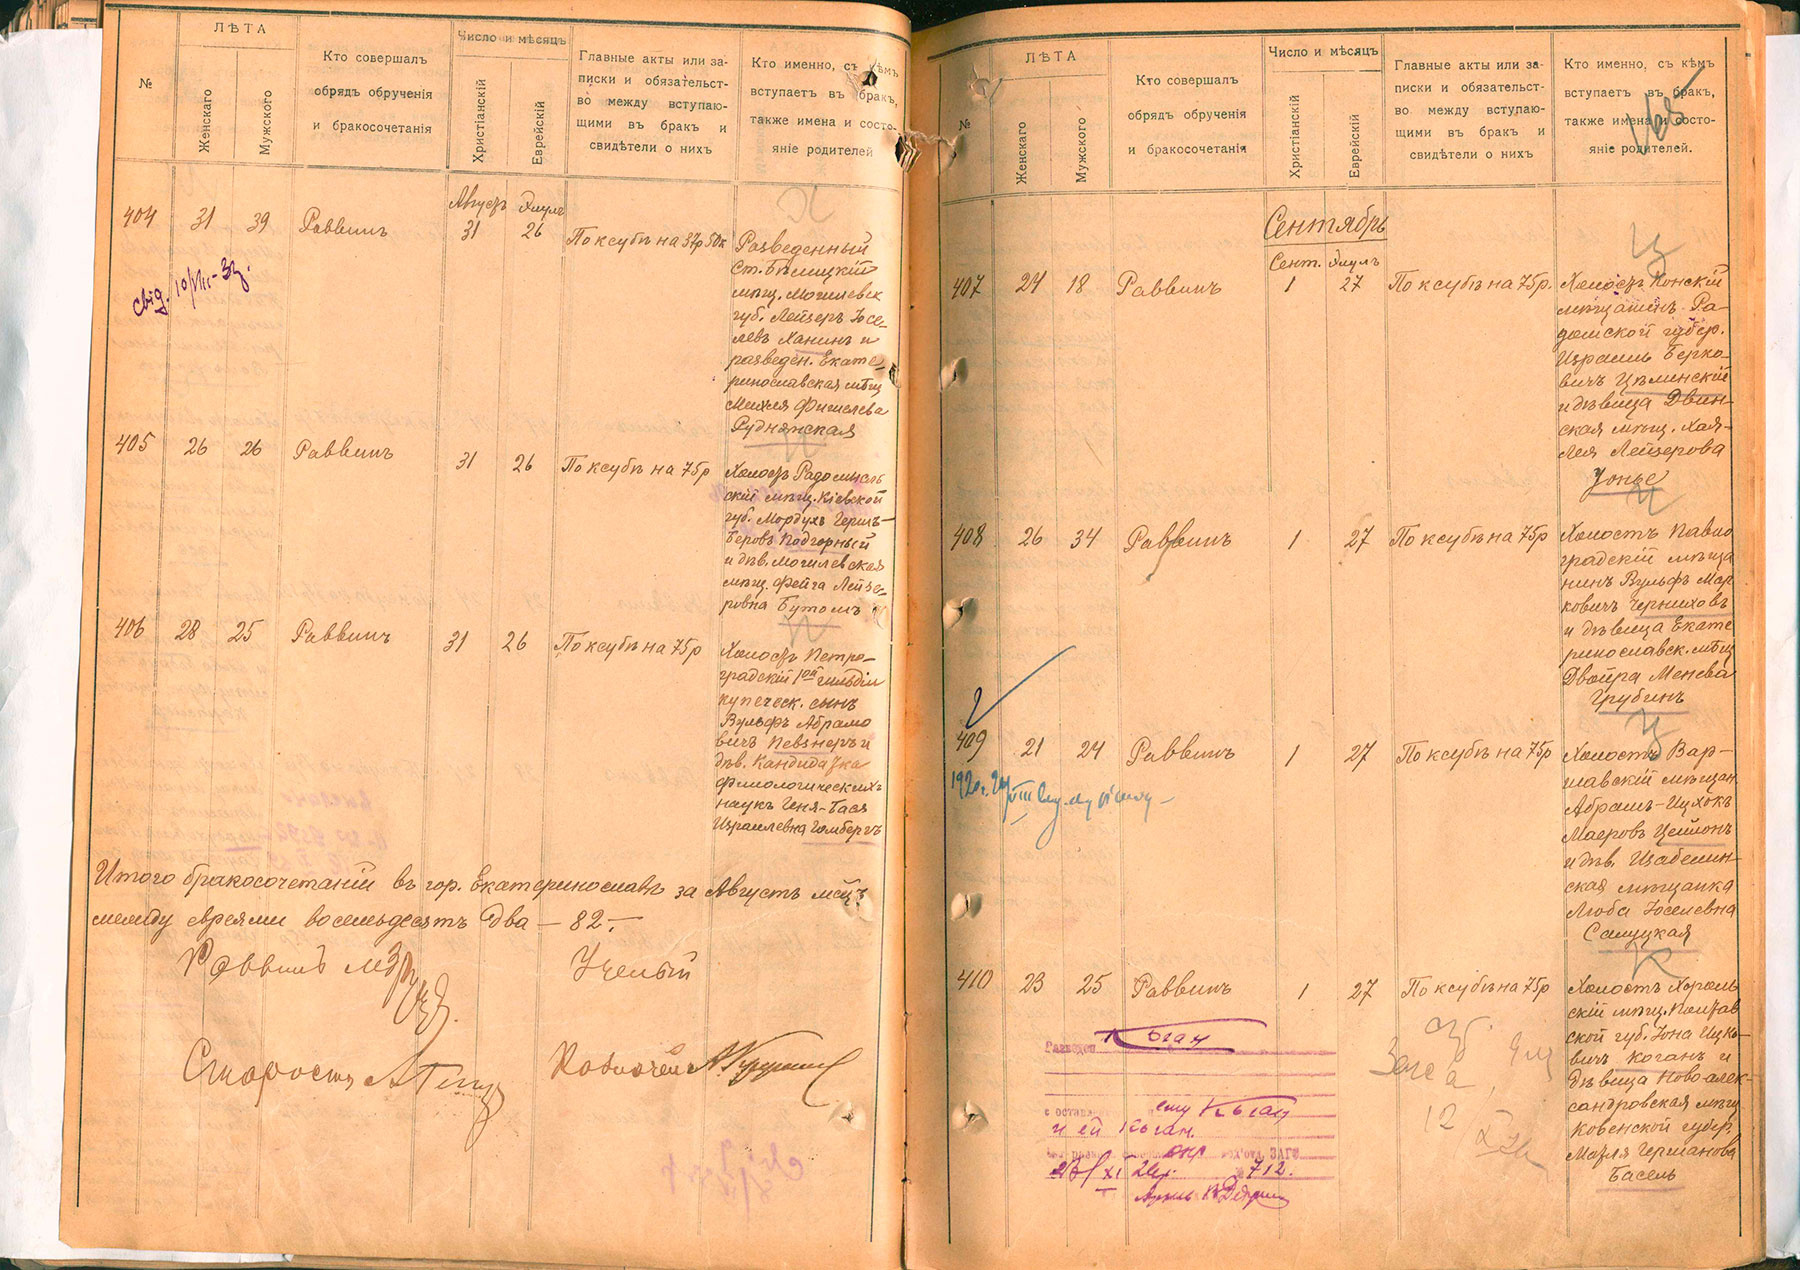 ЛѢТА
Число и мѣсяцъ
№
Женскаго
Мужского
Кто совершалъ
обрядъ обрученія
и бракосочетанія
Христіанскій
Еврейскій
Главные акты или за-
писки и обязательст-
во между вступаю-
щими въ бракъ и
свидѣтели о нихъ
Кто именно, съ кѣмъ
вступаетъ въ бракъ,
также имена и состо-
яніе родителей
Августъ Элулъ
404 31 39 Раввинъ 31 26 По ксубѣ на 37р 50к
Разведенный
ст. Бѣлицкій
мѣщ. Могилевск
губ. Лейзеръ Іосе-
левъ Ханинъ и
разведен. Екате-
ринославская мѣщ
Михля Фишелева
Руднянская
405 26 26 Раввинъ 31 26 По ксубѣ на 75р
Холостъ Радомысль
скій мѣщ. Кіевской
губ. Мордухъ Герш-
Беровъ Подгорный
и дѣв. Могилевская
мѣщ. Фейга Лейзе-
ровна Бутомъ
406 28 25 Раввинъ 31 26 По ксубѣ на 75р
Холостъ Петро-
градскій 1ой гильдіи
купеческ. сынъ
Вульфъ Абрамо
вичъ Певзнеръ и
дѣв. Кандидатка
филологическихъ
наукъ Геня-Бася
Израилевна Гомбергъ
Итого бракосочетаній въ гор. Екатеринославѣ за Августъ мѣц
между евреями восемьдесятъ два — 82. —
Раввинъ
Ученый
Староста
Казначей
ЛѢТА
Число и мѣсяцъ
№
Женскаго
Мужского
Кто совершалъ
обрядъ обрученія
и бракосочетанія
Христіанскій
Еврейскій
Главные акты или за-
писки и обязательст-
во между вступаю-
щими въ бракъ и
свидѣтели о нихъ
Кто именно, съ кѣмъ
вступаетъ въ бракъ,
также имена и состо-
яніе родителей.
168
Сентябрь
Сент. Элулъ
407 24 18 Раввинъ 1 27 По ксубѣ на 75р.
Холостъ Конскій
мѣщанинъ Ра-
домской губер.
Израиль Берко-
вичъ Цѣлинскій
и дѣвица Двин-
ская мѣщ. Хая-
Лея Лейзерова
Іонье
408 26 34 Раввинъ 1 27 По ксубѣ на 75р
Холостъ Павло
градскій мѣща
нинъ Вульфъ Мар
ковичъ Черниховъ
и дѣвица Екате
ринославск. мѣщ
Двойра Менева
Грубинъ
409 21 24 Раввинъ 1 27 По ксубѣ на 75р
Холостъ Вар-
шавскій мѣщан.
Абрамъ-Ицхокъ
Маеровъ Цейтонъ
и дѣв. Щабелин-
ская мѣщанка
Люба Іоселевна
Слуцкая
410 23 25 Раввинъ 1 27 По ксубѣ на 75р
Холостъ Хороль
скій мѣщ. Полтав
ской губ. Іона Ицко-
вичъ Коганъ и
дѣвица Новоалек-
сандровская мѣщ
Ковенской губер.
Маэля Германова
Басель
Разведен Коган
ему Коган
и ей Коган.
ЗАГС
№ 712.